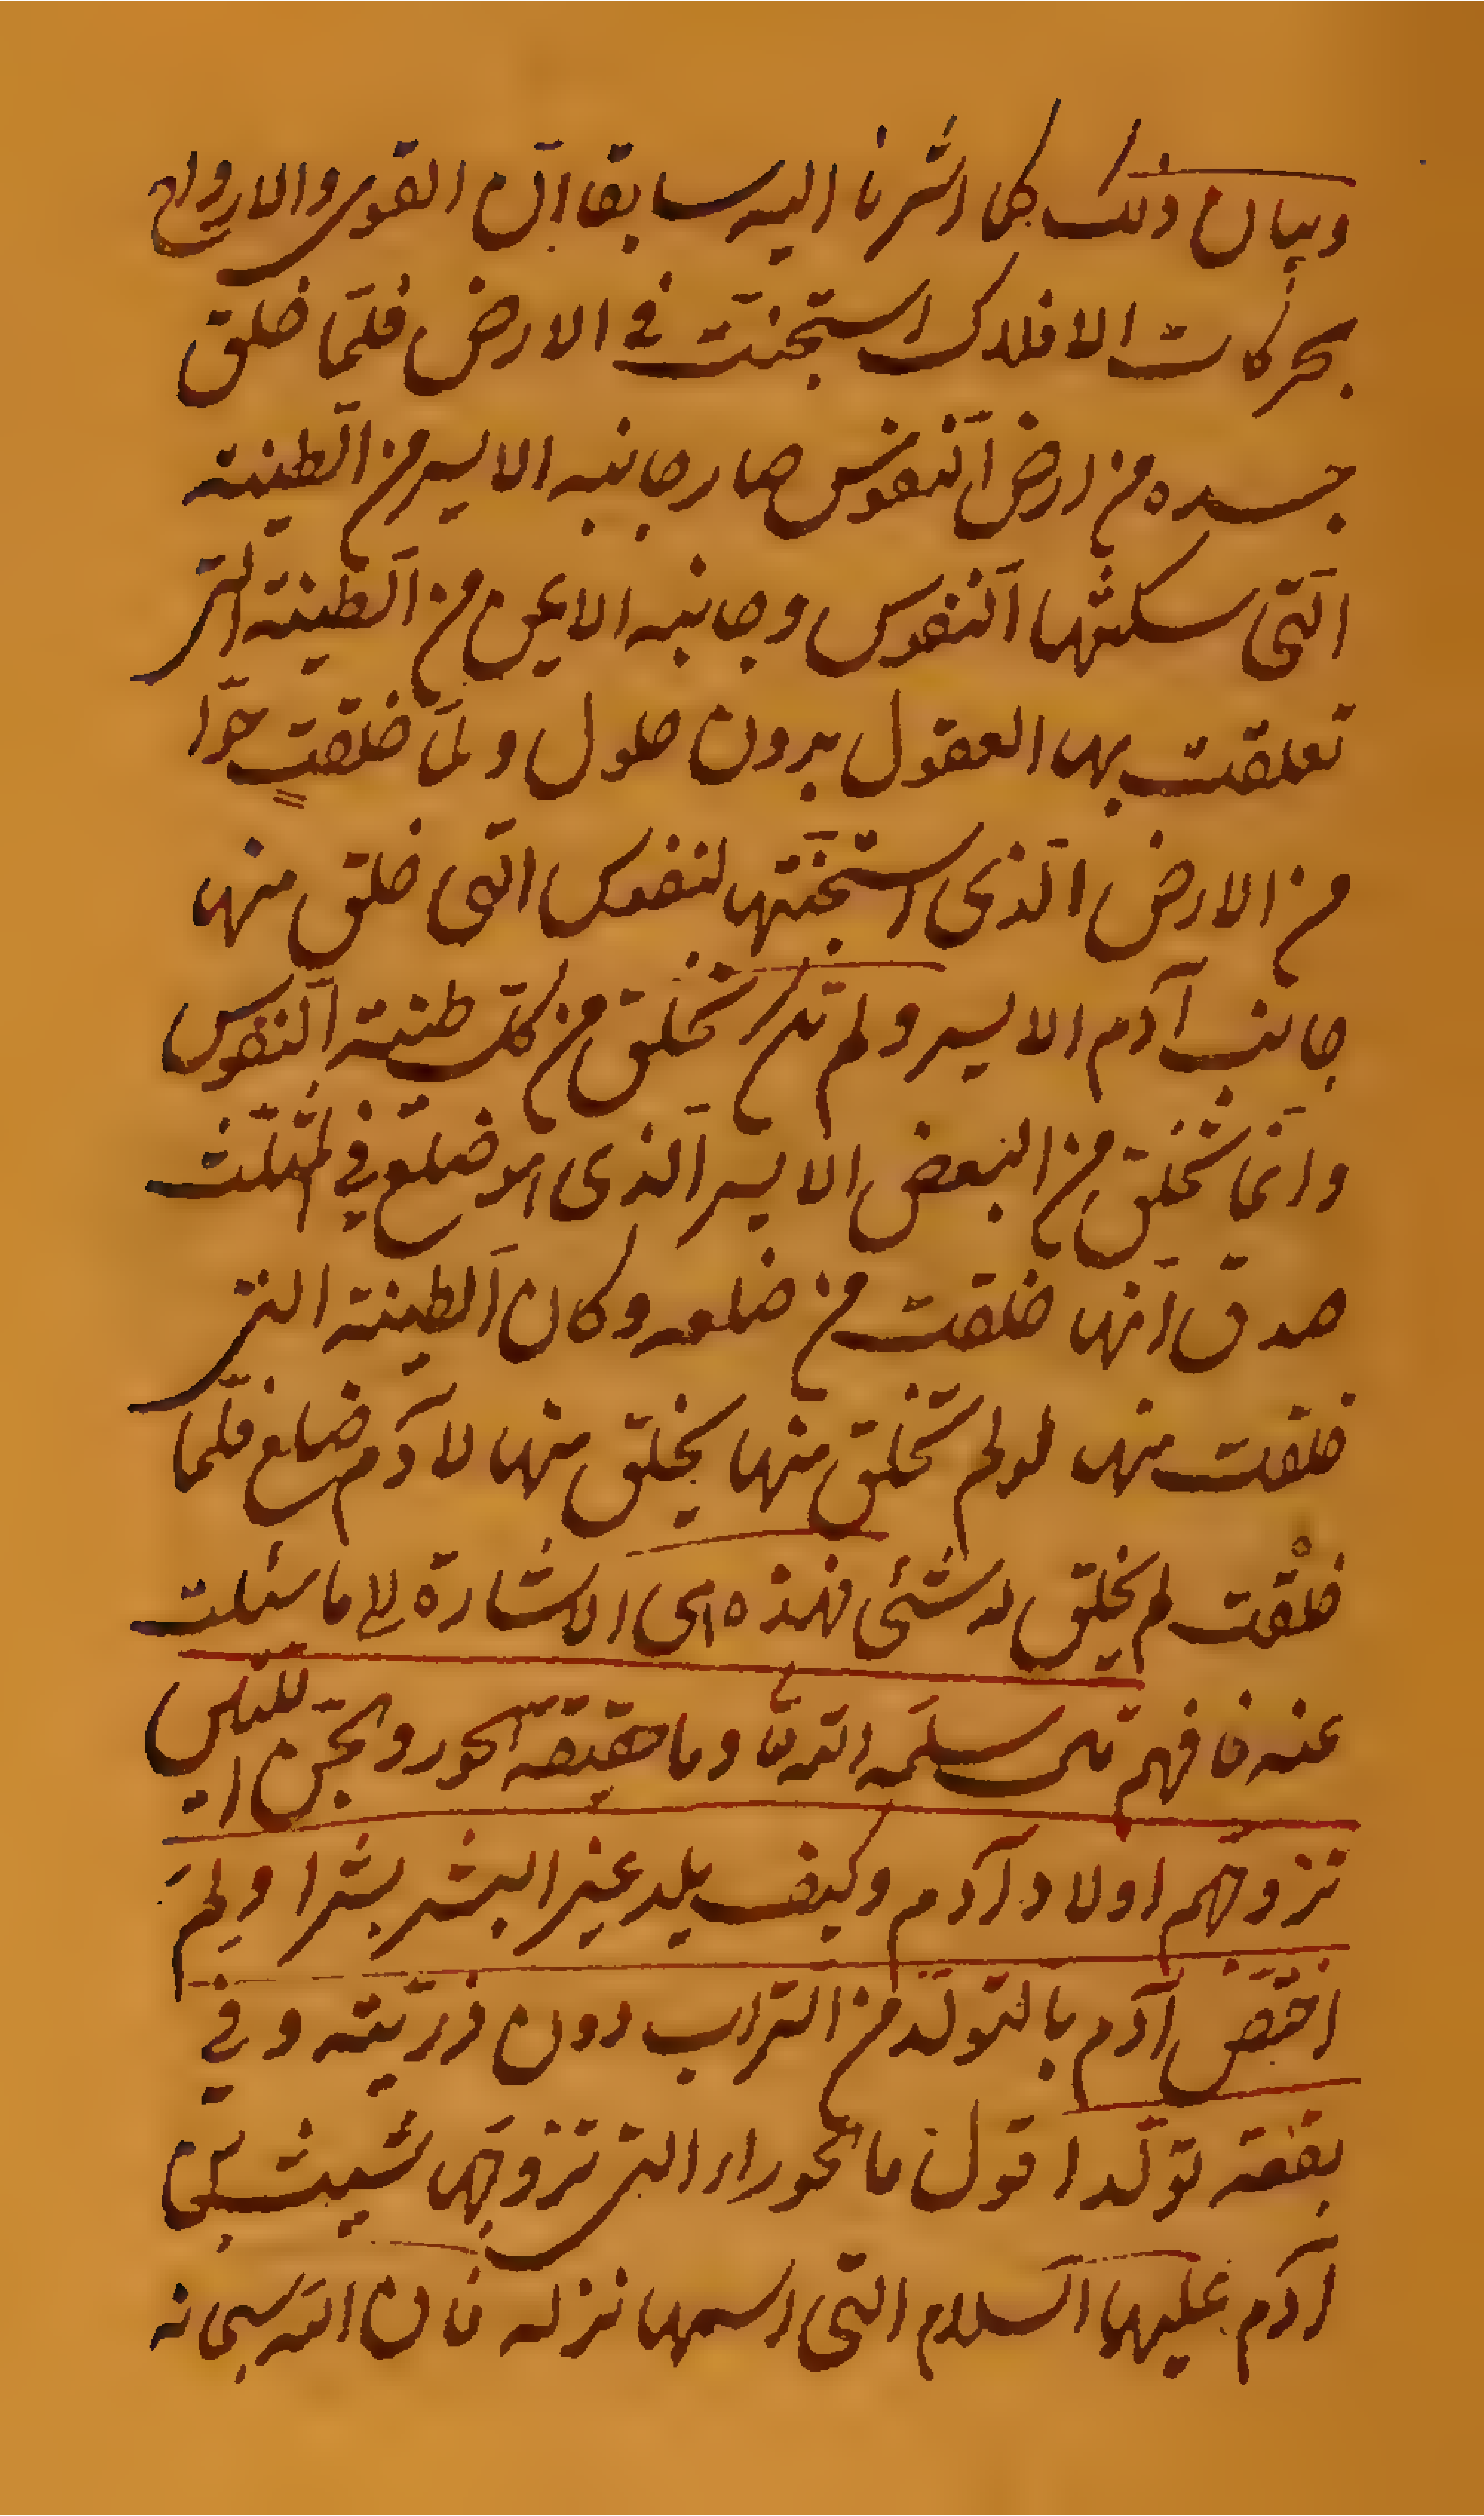 وبيان ذلك كما اشرنا اليه سابقا انّ القوى والارواح
بحركات الافلاك استجنّت فى الارض فلمّا خلق
جسده من ارض النّفوس صار جانبه الايسر من الطّينة
الّتى سكنتها النّفوس وجانبه الايمن من الطّينة الّتى
تعلقت بها العقول بدون حلول ولمّا خلقت حوّا
من الارض الّذى استجنّتها لنفوس الّتى خلق منها
جانب آدم الايسر ولم تكن تخلق من كلّ طينة النّفوس
وانّما تخلق من البعض الايسر الّذى هو ضلع فى المثلّث
صدق انّها خلقت من ضلعه وكان الطّينة التى
خلقت منها لو لم تخلق منها يخلق منها لآدم ضلع فلمّا
خلقت لم يخلق له شئى فهذه هى الاشارة الى ما سئلت
عنه فافهم قال سلّمه الله تعالى وما حقيقة الحور والجنّ اللتين
تزوّجهم اولاد آدم وكيف يلد غير البشر بشرا ولِمَ
اختصّ آدم بالتولّد من التراب دون ذرّيّته وفى
بقعة تولّد اقول ما الحوراء التى تزوّجها شيث بن
آدم عليهما السّلام الّتى اسمها نزله فان الله سبحانه